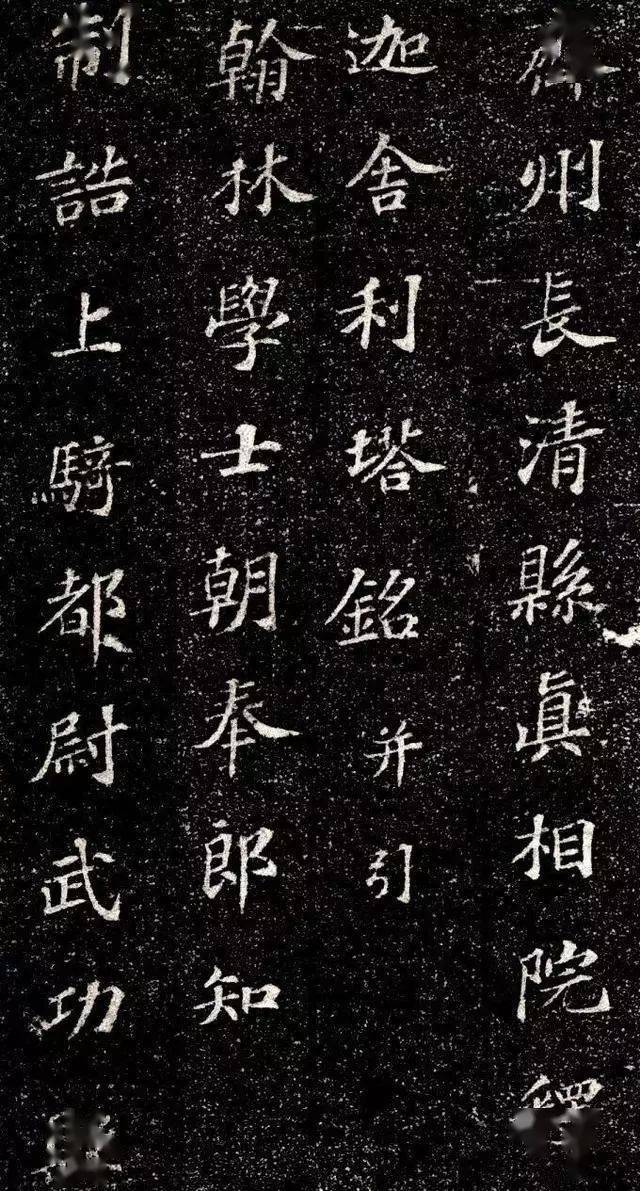 齊州長清縣真相院釋
迦舍利塔銘并引
翰林學士朝奉郎知
制誥上騎都尉武功縣